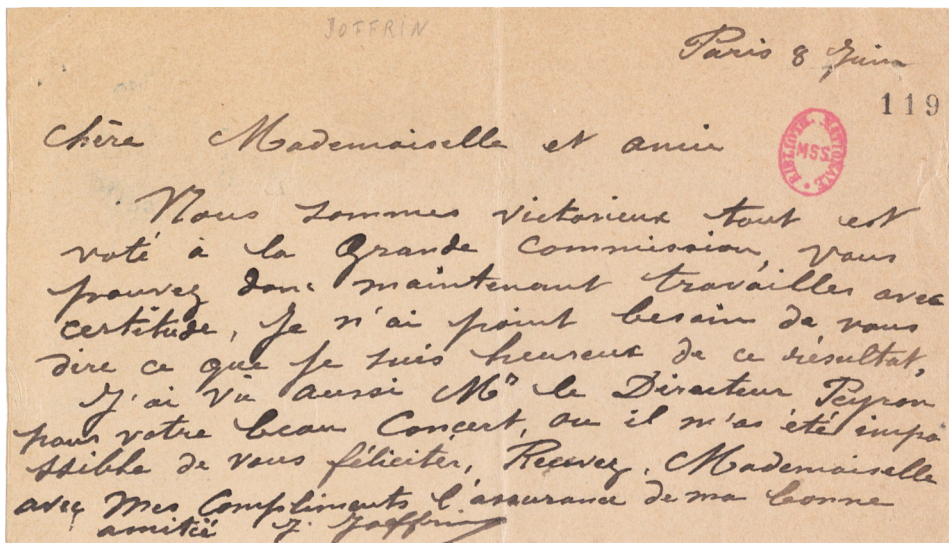 JOFFRIN
Paris 8 Juin
119
Chère Mademoiselle et amie
BIBLIOTH. NATIONALE MSS.
Nous sommes victorieux tout est
voté à la Grande commission, vous
pouvez donc maintenant travailler avec
certitude, Je n'ai point besoin de vous
dire ce que je suis heureux de ce résultat,
J'ai vu aussi Mr le Directeur Peyron
pour votre beau Concert, ou il m'as été impo
ssible de vous féliciter, Recevez, Mademoiselle
avec mes Compliments l'assurance de ma bonne
amitié J. Joffrin